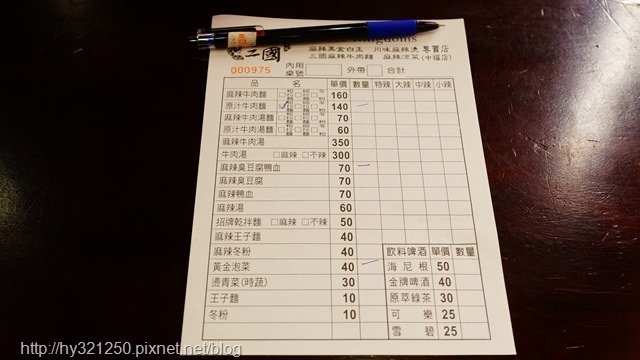 三國
麻辣黑金白玉 川味麻辣燙 專賣店
三國麻辣牛肉麵 麻辣涼菜(中福店)
000975
內用桌號 外帶 合計
品 名 單價 數量 特辣 大辣 中辣 小辣
麻辣牛肉麵 160
原汁牛肉麵 140
麻辣牛肉湯麵 70
原汁牛肉湯麵 60
麻辣牛肉湯 350
牛肉湯 □麻辣 □不辣 300
麻辣臭豆腐鴨血 70
麻辣臭豆腐 70
麻辣鴨血 70
麻辣湯 60
招牌乾拌麵 □麻辣 □不辣 50
麻辣王子麵 40
麻辣冬粉 40 飲料啤酒 單價 數量
黃金泡菜 40 海尼根 50
燙青菜(時蔬) 30 金牌啤酒 40
王子麵 10 原萃綠茶 30
冬粉 10 可樂 25
雪碧 25
http://hy321250.pixnet.net/blog